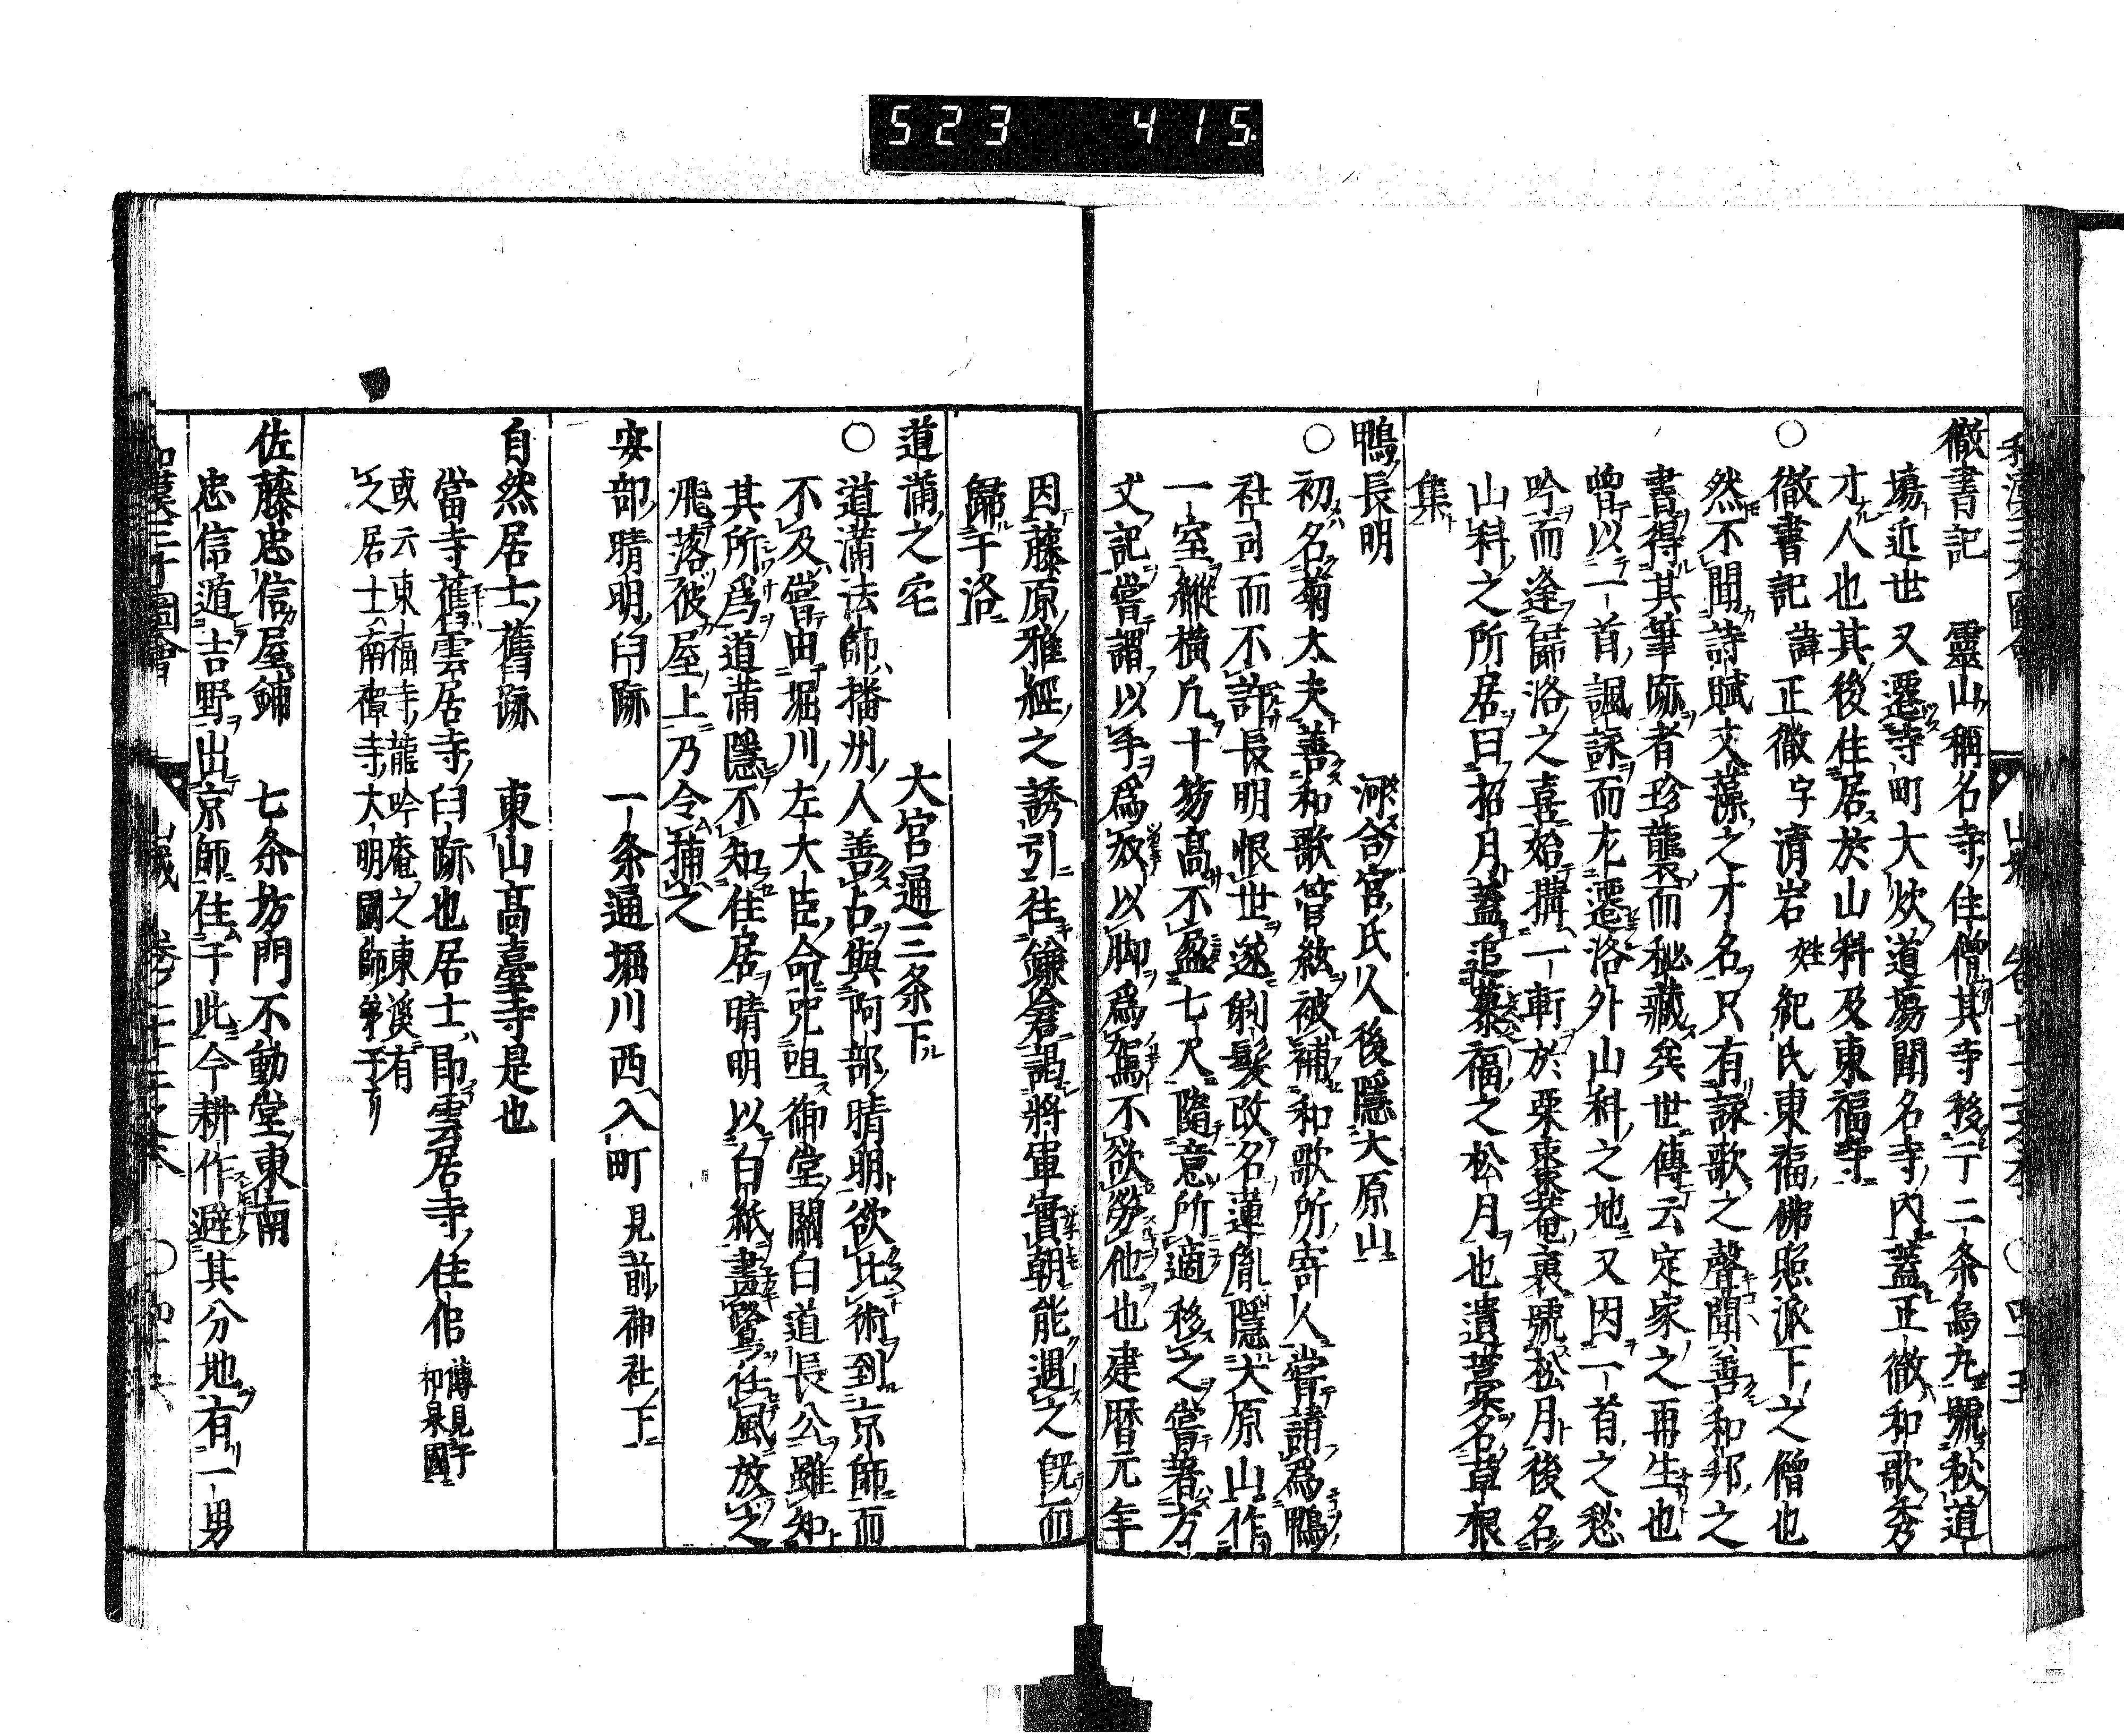 523 415
徹書記 靈山稱名寺住僧其寺移于二条烏丸號秋道
塲近世又遷寺町大炊道塲聞名寺内蓋正徹和歌秀
才人也其後住居於山科及東福寺
○徹書記 諱正徹字清岩 姓紀氏東福佛照派下之僧也
然不聞詩賦文藻之才名只有詠歌之聲聞善和邦之
書得其筆跡者珍襲而秘藏矣世傳云定家之再生也
曾以一首諷詠而左遷洛外山科之地又因一首之愁
吟而逢歸洛之喜始搆一軒於栗棘菴裏號松月後名
山科之所居曰招月蓋追慕福之松月也遺藁名草根
集
鴨長明 河合宮氏人後隱大原山
○初名菊太夫善和歌管絃被補和歌所寄人嘗請爲鴨
社司而不許長明恨世遂剃髮改名蓮胤隱大原山作
一室縱橫凡十笏高不盈七尺隨意所適移之嘗著方
丈記嘗謂以手爲奴以脚爲駕不欲勞他也建曆元年
因藤原雅經之誘引徃鎌倉謁將軍實朝能遇之既而
歸于洛
道滿之宅 大宮通三条下ル
○道滿法師播州人善占與阿部晴明欲比術到京師而
不及嘗由堀川左大臣命咒咀御堂關白道長公雖知
其所爲道滿隱不知住居晴明以白紙畫鷺任風放之
飛落彼屋上乃令捕之
安部晴明旧跡 一条通堀川西入町 見前神社下
自然居士舊跡 東山高臺寺是也
當寺舊雲居寺旧跡也居士即雲居寺住侶 傳見于和泉國
或云東福寺龍吟庵之東溪有
人居士南禪寺大明國師弟子ナリ
佐藤忠信屋鋪 七条坊門不動堂東南
忠信道吉野出京師住于此今耕作避其分地有一男